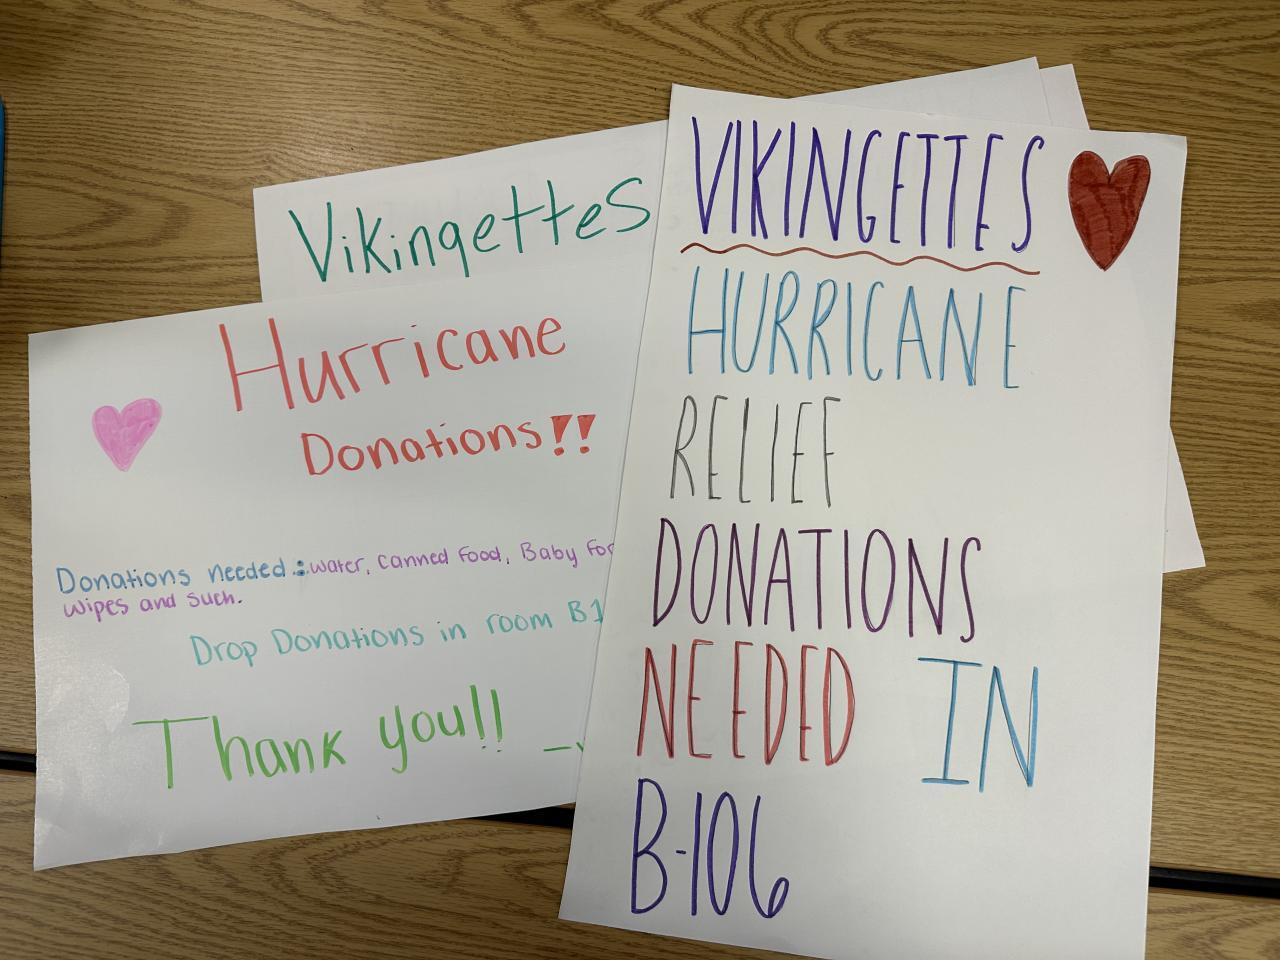 Vikingettes
Hurricane
Donations!!
Donations needed: water, canned food, Baby
wipes and such.
Drop Donations in room
Thank you!!
VIKINGETTES
HURRICANE
RELIEF
DONATIONS
NEEDED IN
B-106